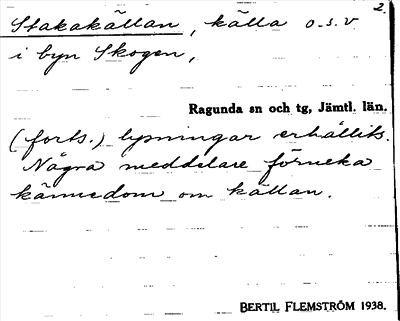 2.
Stakakällan, källa o.s.v
i byn Skogen,
Ragunda sn och tg, Jämtl. län.
(forts.) lysningar erhållits.
Några meddelare förneka
kännedom om källan.
BERTIL FLEMSTRÖM 1938.